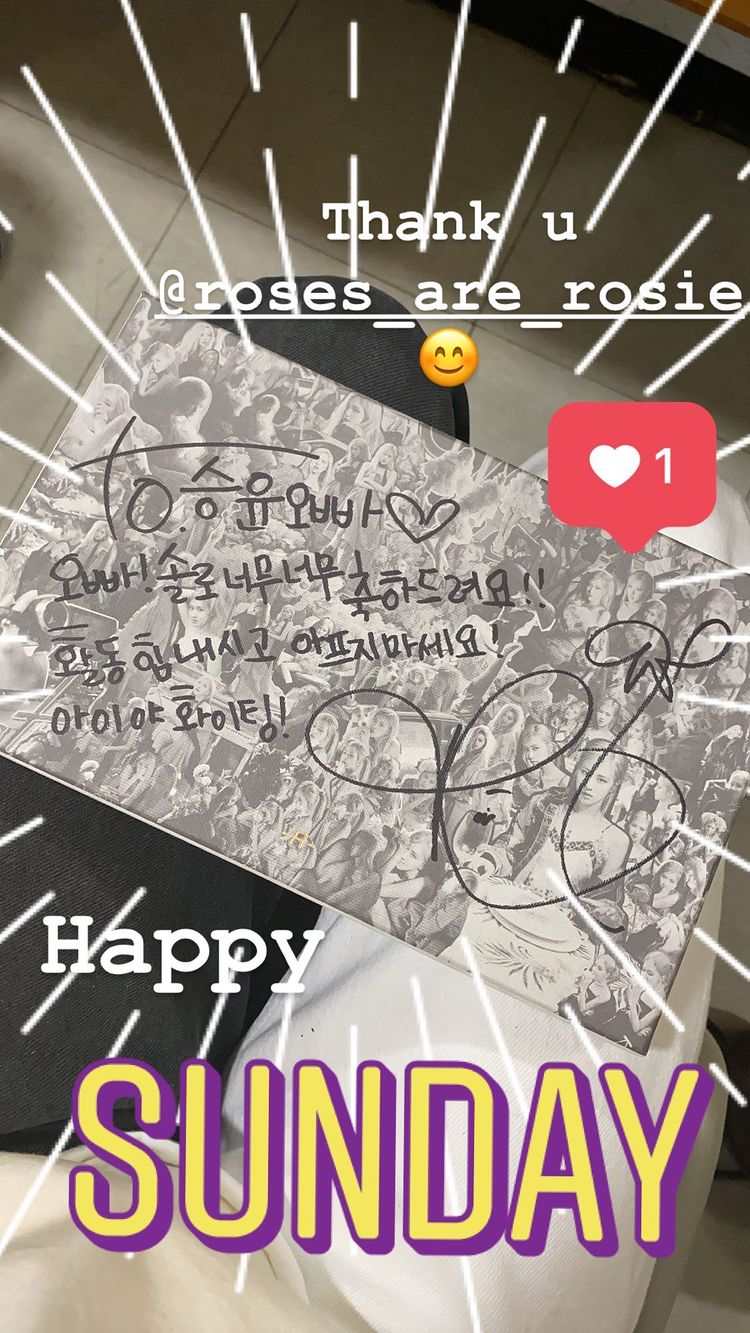 Thank u
@roses_are_rosie
1
To.승윤오빠♡
오빠! 솔로너무너무 축하드려요!!
활동 힘내시고 아프지마세요!
아이야 화이팅!
-R-
Happy
SUNDAY